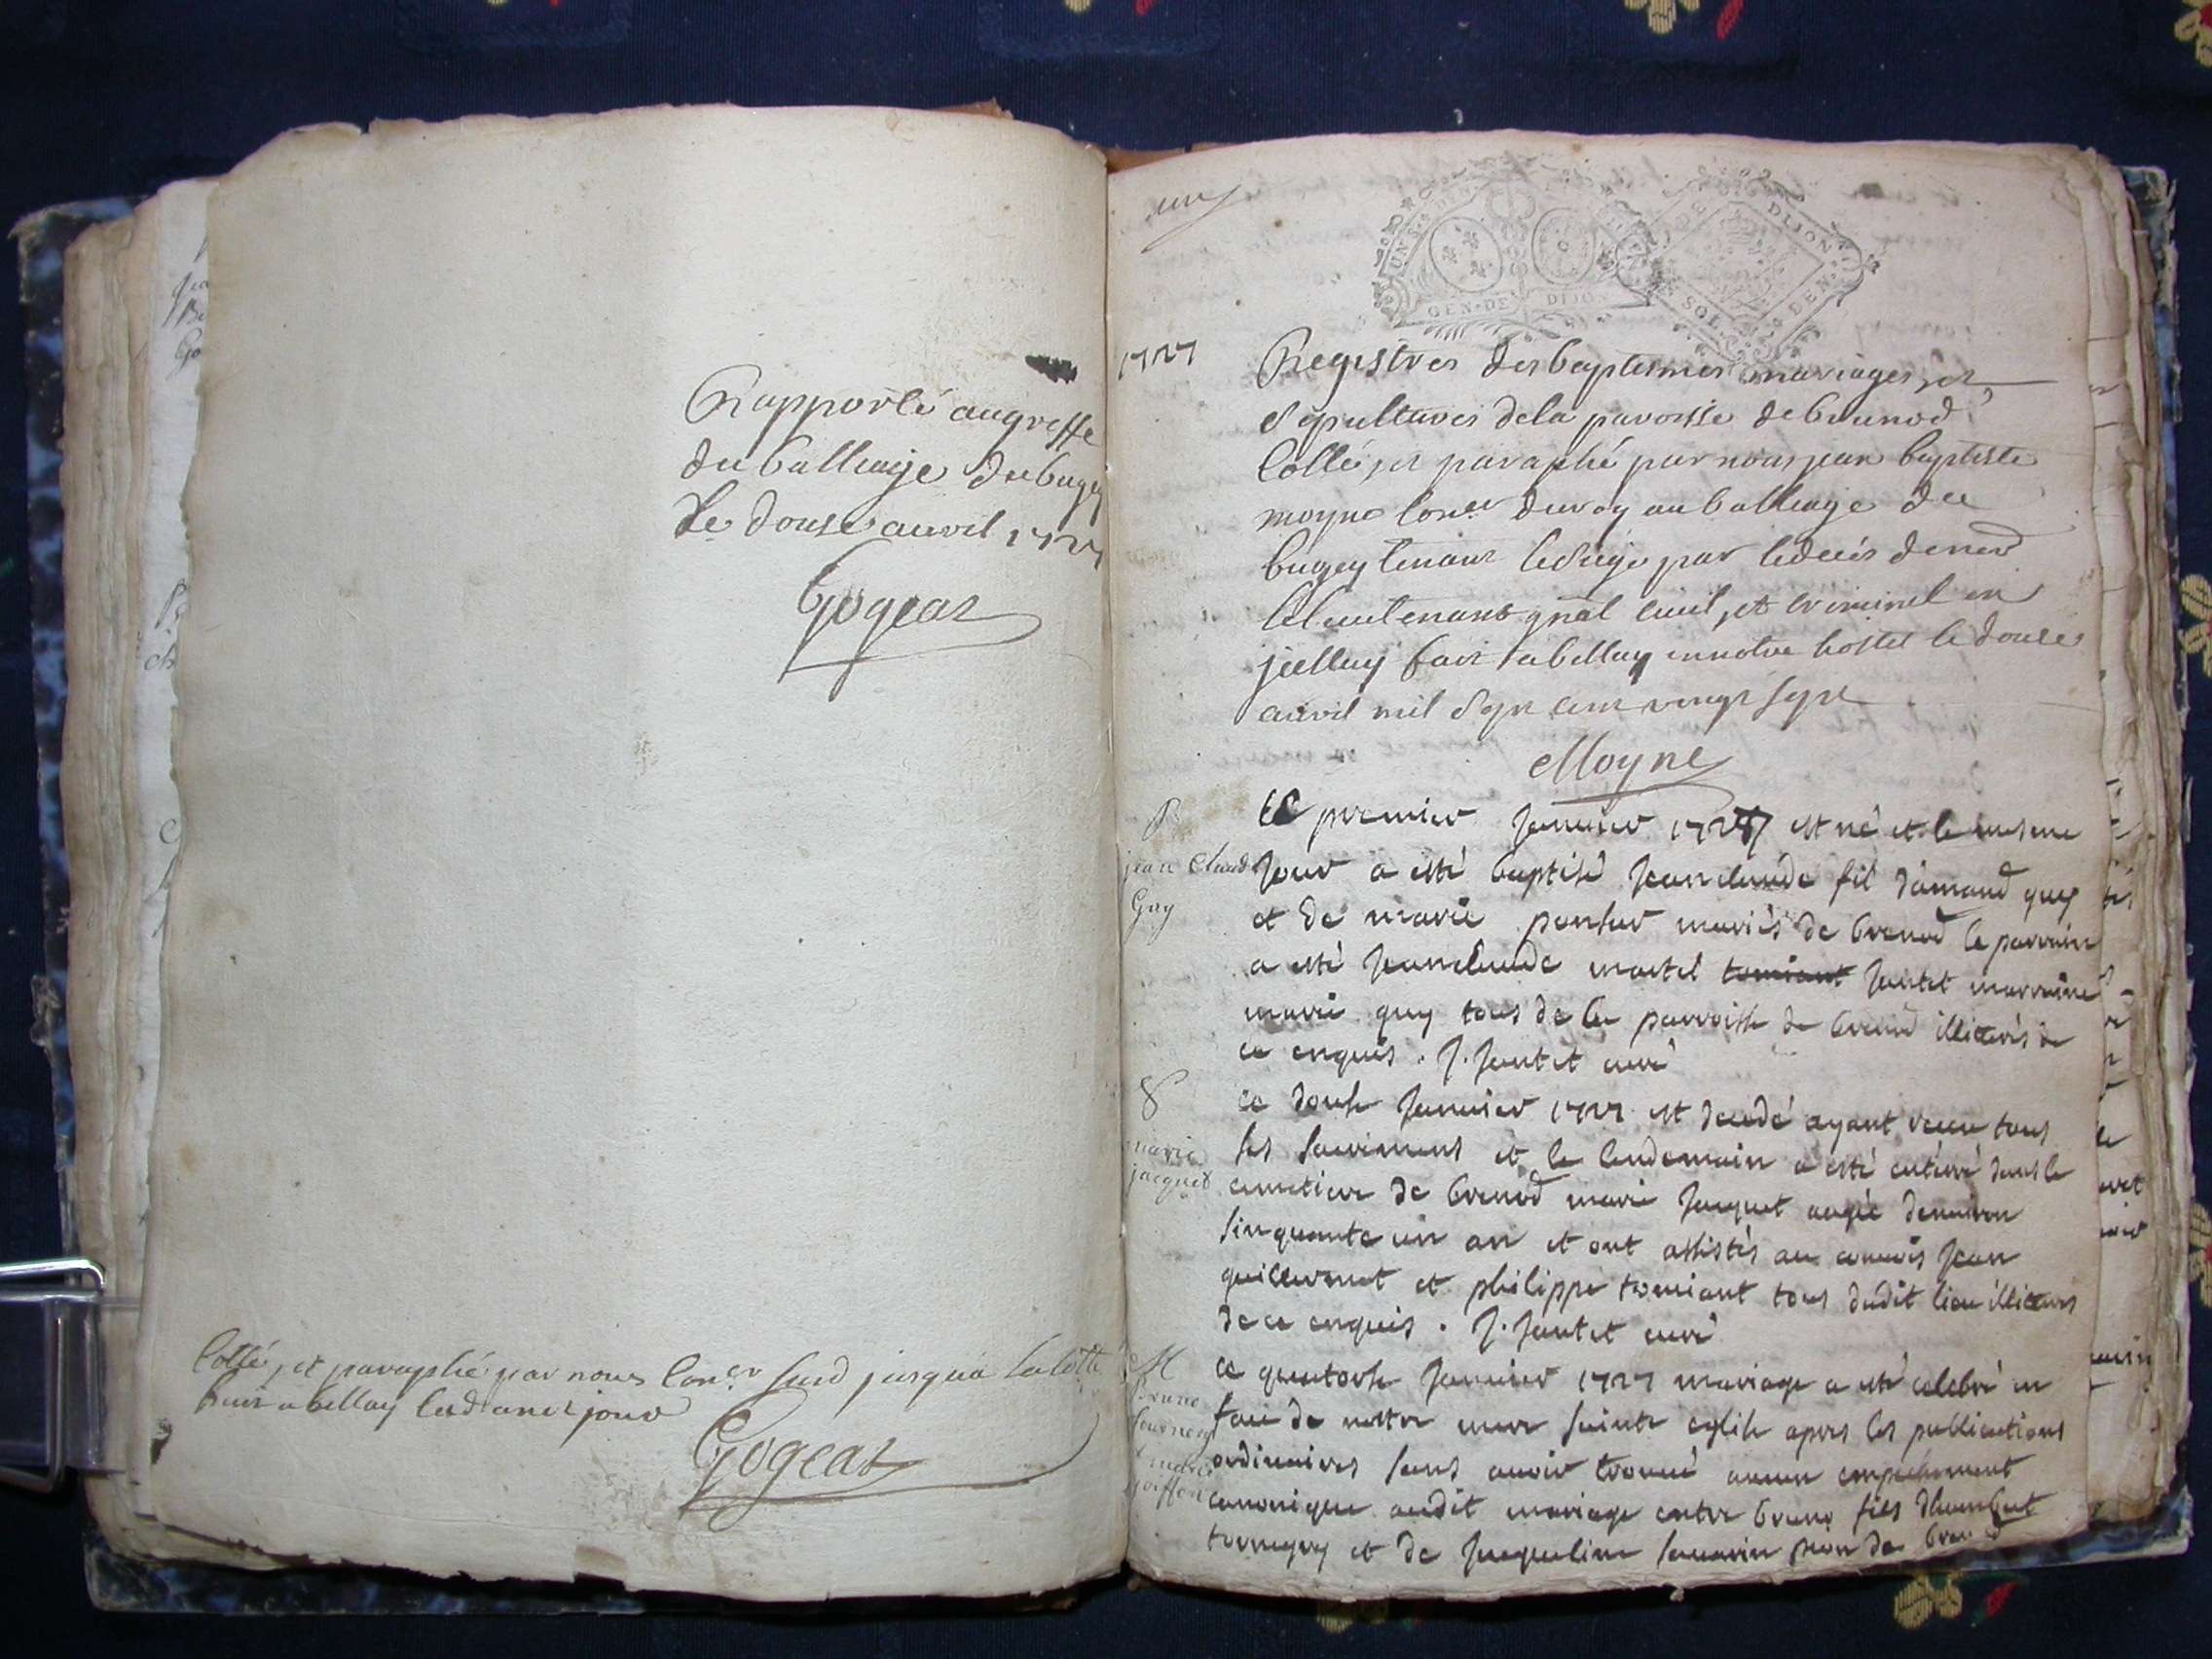 Rapporté au greffe
du balliage du bugey
Le douse auvril 1727
Gogeat
Cotté, et paraphé par nous Con.er susd jusqua
fait a bellay led an et jour
Gogeat
un
UN S.
GEN. DE DIJON
DIJON
SOL
DEN.
1727
Registres des baptesmes mariages, et
Sepultures de la paroisse de brunod
Cotté, et paraphé par nous jean baptiste
moyne Con.er du roy au balliage du
bugey tenant le siege par le deces de
le lieutenant gnal civil, et criminel en
jcelluy fait a bellay en notre hostel le douse
auvril mil sept cent vingt sept
Moyne
B
jean Claude
Guy
ce premier Janvier 1727 est né et le mesme
Jour a esté baptisé Jean claude fil damand guy
et de marie mariés de brenod le parrain
a esté Jean claude martel Jantet marraine
marie guy tous de la parroisse de brenod illiterés de
ce enquis . J. Jantet curé
S
marie
jacquet
ce douse Janvier 1727 est decedé ayant receu tous
ses sacrimens et le lendemain a esté entérré dans le
cemetiere de brenod marie Jaquet augée denviron
sinquante un an et ont assistés au convois Jean
guillermet et philippe tomiant tous dudit lieu illiterés
de ce enquis . J. Jantet curé
M
bruno
tournery
marie
goiffon
ce quatorse Janvier 1727 mariage a esté celebré en
face de nottre mere sainte eglise apres les publications
ordinaires sans avoir trouvé aucun empechement
canonique audit mariage entre bruno fils dhumbert
et de Jaqueline savarin de brenod